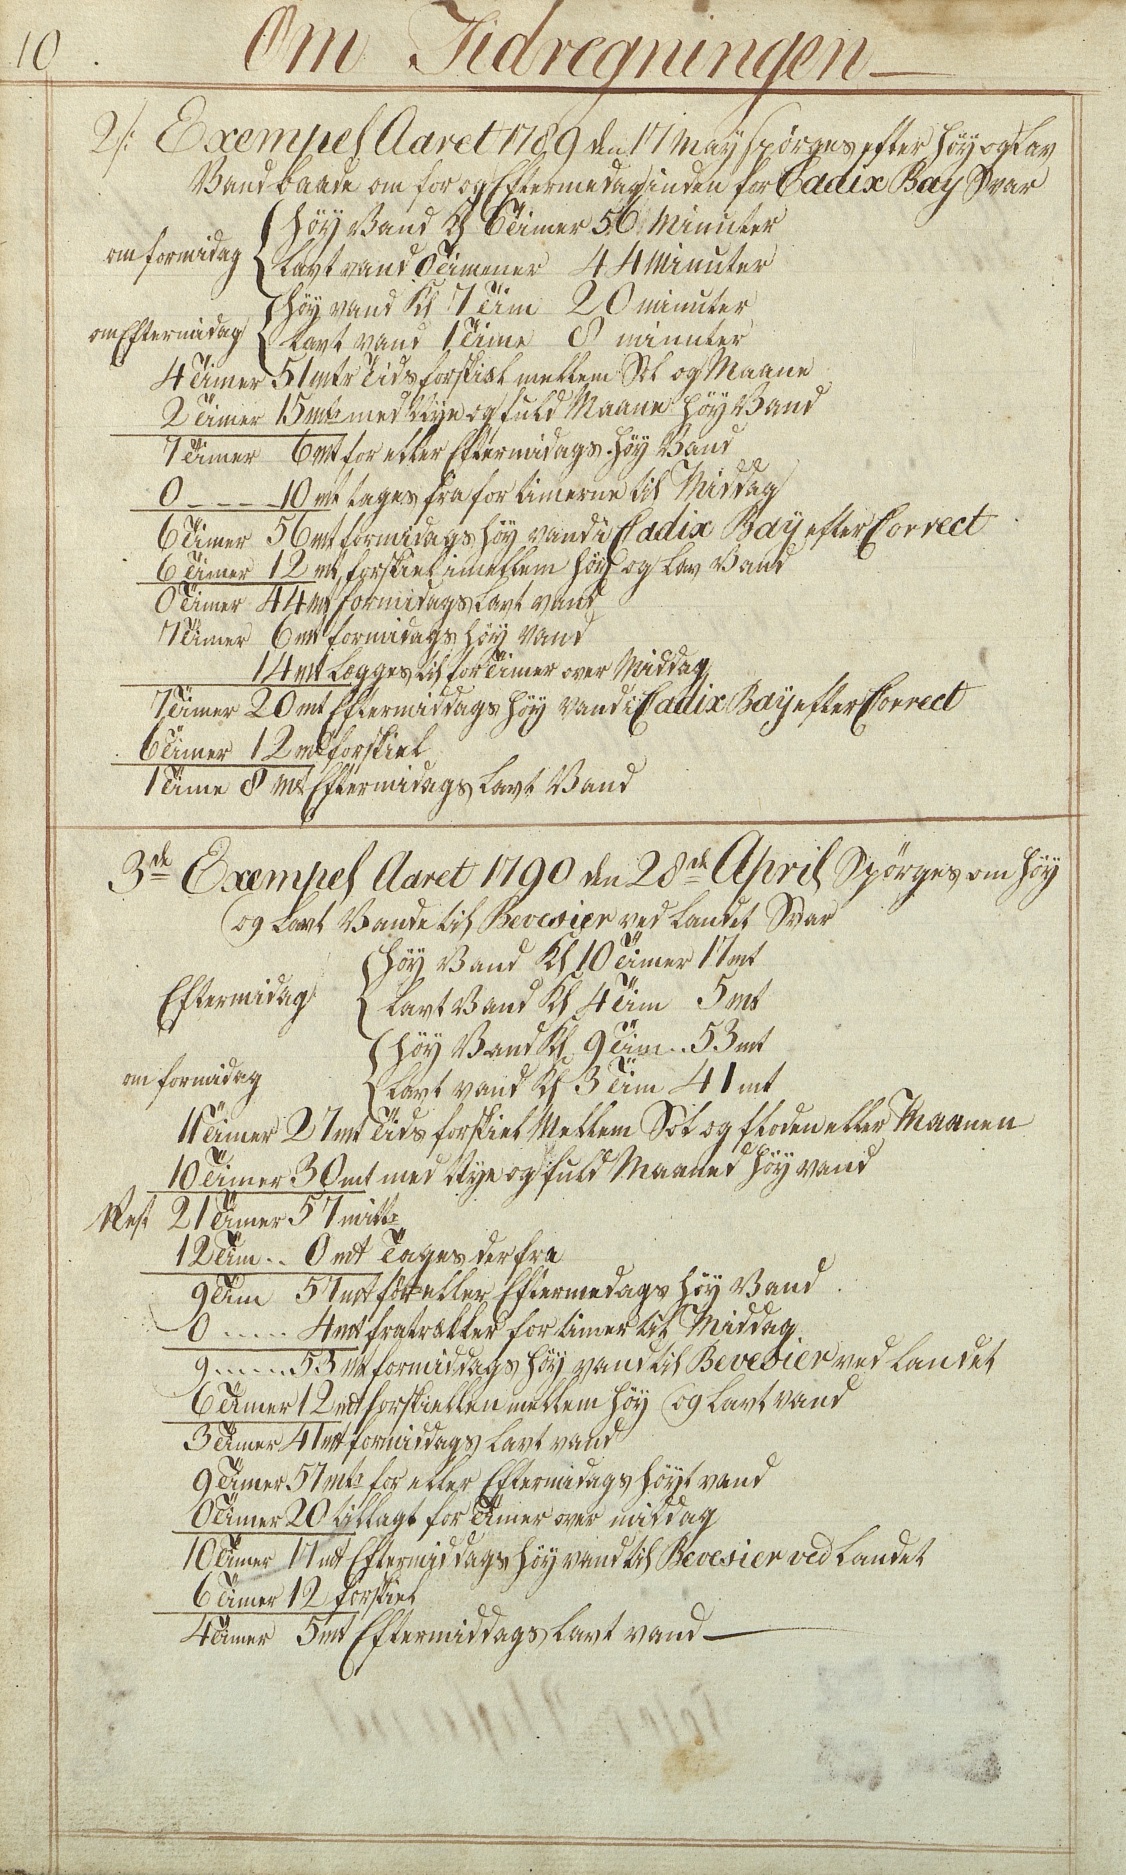 10 .
Om Tidregningen
2/: Exempel Aaret 1789 den 17 May spörges efter Höy og Lav
Vand baade om for og Eftermedag inden for Cadix Bay Svar
Höy Vand Kl 6 Timer 56 Minuter
om formidag
Lavt vand 0 Timener 44 Minuter
Höy vand Kl 7 Tim 20 minuter
om Eftermidag
Lavt vand 1 Time 8 minuter
4 Timer 51 mtr Tids forskiel mellem Sol og Maane
2 Timer 15 mtr med Nye og fuld Maane Höy Vand
7 Timer 6 mt for eller Eftermidags Höy Vand
0 - - - - 10 mt tages fra for timerne til Middag
6 Timer 56 mt formidags Höy vand i Cadix Bay efter Correct
6 Timer 12 mt forskiel imellem Höy og Lav Vand
0 Timer 44 mt formidags Lavt vand
7 Timer 6 mt formidags Höy Vand
14 mt Lægges til for Timer over Middag
7 Timer 20 mt Eftermiddags Höy vand i Cadix Bay efter Correct
6 Timer 12 mt forskiel
1 Time 8 mt Eftermidags Lavt Vand
3de Exempel Aaret 1790 den 28de April Spörges om Höy
og Lavt Vande til Bevesier ved Landet Svar
Höy Vand Kl 10 Timer 17 mt
Eftermidag
Lavt Vand Kl 4 Tim 5 mt
Höy Vand Kl 9 Tim.. 53 mt
om formidag
Lavt vand Kl 3 Tim 41 mt
11 Timer 27 mt Tids forskiel Mellem Sol og floden eller Maanen
10 Timer 30 mt med Nye og fuld Maaned Höy vand
Rest 21 Timer 57 mitr
12 Tim.. 0 mt Tages der fra
9 Tim 57 mt for eller Eftermedags Höy Vand
0 ...... 4 mt fratrækker for timer til Middag
9 ...... 53 mt formiddags Höy vand til Bevesier ved Landet
6 Timer 12 mt forskiellen mellem Höy og Lavt vand
3 Timer 41 mt formiddags Lavt vand
9 Timer 57 mtr for eller Eftermidags Höyt vand
0 Timer 20 tillagt for Timer over middag
10 Timer 17 mt Eftermiddags Höy vand til Bevesier ved Landet
6 Timer 12 forskiel
4 Timer 5 mt Eftermiddags Lavt vand